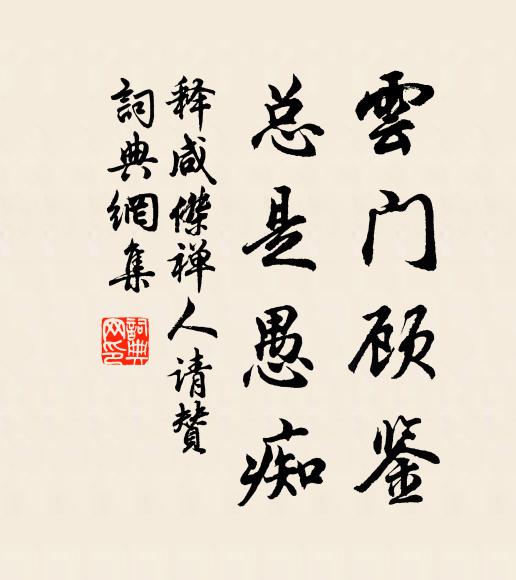 雲门顾鉴
总是愚痴
释咸傑禅人请赞
詞典網集
詞典网印